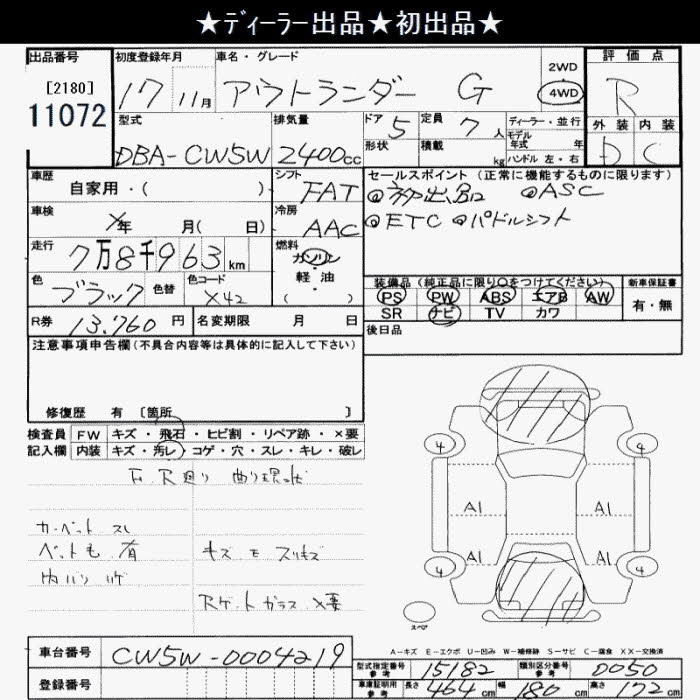 ★ディーラー出品★初出品★
出品番号
[2180]
11072
初度登録年月
17 11月
車名・グレード
アウトランダー G
2WD
4WD
評価点
R
外装 内装
D C
型式
DBA-CW5W
排気量
2400cc
ドア 5
形状
定員 7人
積載 kg
ディーラー・並行
モデル年式 年
ハンドル 左・右
車歴
自家用・( )
シフト
FAT
セールスポイント (正常に機能するものに限ります)
◎初出品 ◎ASC
◎ETC ◎パドルシフト
車検
年 月( 日)
冷房
AAC
走行
7万8千963km
燃料
ガソリン
軽・油
( )
色
ブラック
色替
色コード
X42
装備品(純正品に限り○をつけてください)
PS PW ABS エアB AW
SR ナビ TV カワ
新車保証書
有・無
R券 13,760円
名変期限 月 日
後日品
注意事項申告欄(不具合内容等は具体的に記入して下さい)
修復歴 有 [箇所 ]
検査員
記入欄
FW キズ・飛石・ヒビ割・リペア跡・×要
内装 キズ・汚レ・コゲ・穴・スレ・キレ・破レ
F、R廻り 曲り現状
カーペット スレ
ペット毛 有
内バリ ハゲ
キズ モ スリキズ
ガラス ×要
4 4
A1 A1
A1 A1
4 4
スペア
A-キズ E-エクボ U-凹み W-補修跡 S-サビ C-腐食 XX-交換済
車台番号
CW5W-0004219
登録番号
型式指定番号 参考 15182
類別区分番号 参考 0050
車庫証明用 参考 長さ 464cm 幅 180cm 高さ 172cm